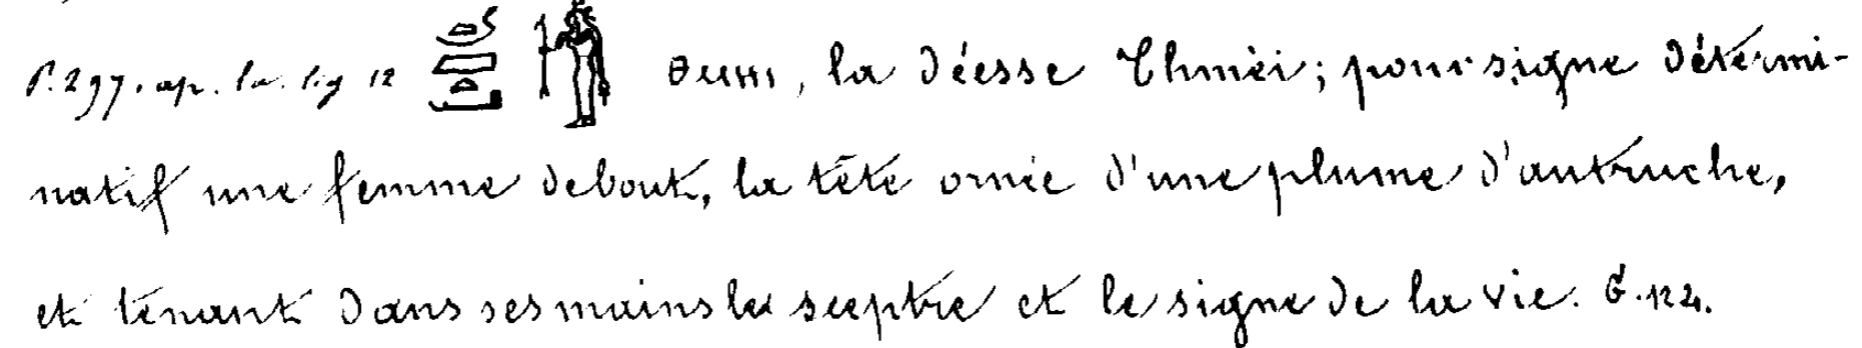 P. 297. ap. la. lig 12 ⲑⲙⲏⲓ, la déesse Thméi; pour signe détermi-
natif une femme debout, la tête ornée d'une plume d'autruche,
et tenant dans ses mains le sceptre et le signe de la vie. G. 124.